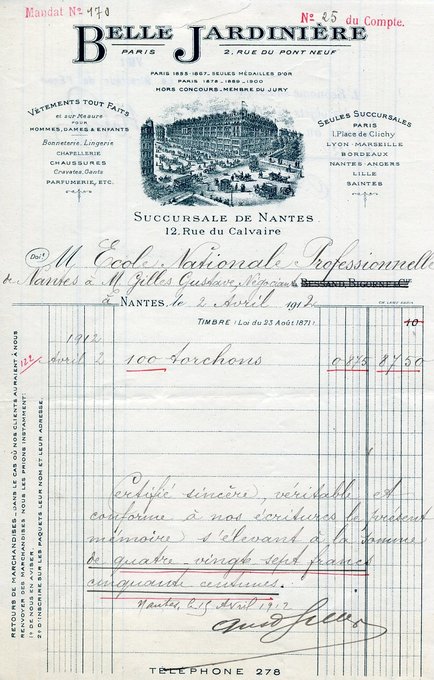 Mandat No 170
No 25 du Compte.
BELLE JARDINIÈRE
PARIS
2, RUE DU PONT NEUF
PARIS 1855-1867-SEULES MÉDAILLES D'OR
PARIS 1878-1889-1900
HORS CONCOURS-MEMBRE DU JURY
VÊTEMENTS TOUT FAITS
et sur Mesure
POUR
HOMMES, DAMES & ENFANTS
Bonneterie, Lingerie
CHAPELLERIE
CHAUSSURES
Cravates, Gants
PARFUMERIE, ETC.
SEULES SUCCURSALES
PARIS
1, Place de Clichy
LYON-MARSEILLE
BORDEAUX
NANTES-ANGERS
LILLE
SAINTES
SUCCURSALE DE NANTES
12, Rue du Calvaire
Doit M École Nationale Professionnelle
de Nantes à M Gilles Gustave, Négociant
à NANTES, le 2 Avril 1912
TIMBRE (Loi du 23 Août 1871) 10
1912
122 Avril 2 100 torchons 0.875 87 50
Certifié sincère, véritable et
conforme à nos écritures le présent
mémoire s'élevant à la somme
de quatre-vingt-sept francs
cinquante centimes.
Nantes, le 15 Avril 1912
TÉLÉPHONE 278
RETOURS DE MARCHANDISES - DANS LE CAS OÙ NOS CLIENTS AURAIENT À NOUS
RENVOYER DES MARCHANDISES NOUS LES PRIONS INSTAMMENT:
1º DE NOUS EN AVISER.
2º D'INSCRIRE SUR LES PAQUETS LEUR NOM ET LEUR ADRESSE.